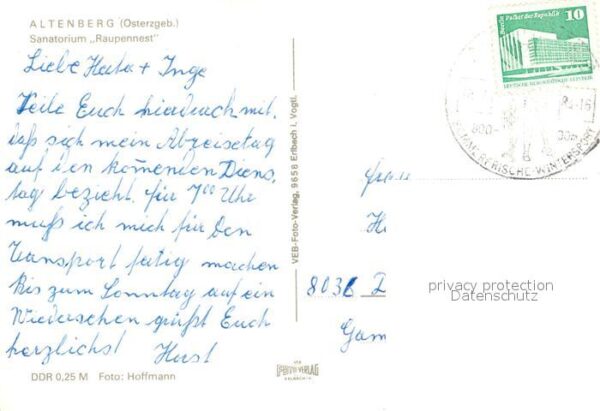 ALTENBERG (Osterzgeb.)
Sanatorium „Raupennest"
Liebe Herta + Inge
Teile Euch hierdurch mit,
daß sich mein Abreisetag
auf den komenden Diens,
tag bezieht. für 7 00 Uhr
muß ich mich für den
Transport fertig machen
Bis zum Sonntag auf ein
Wiedersehen grüßt Euch
herzlichst Horst
DDR 0,25 M Foto: Hoffmann
VEB-Foto-Verlag, 9658 Erlbach i. Vogtl.
VEB
FOTO-VERLAG
ERLBACH
Berlin, Palast der Republik
10
DEUTSCHE DEMOKRATISCHE REPUBLIK
-16
800-
900m
SOMMERFRISCHE-WINTERSPORT
Frau
H
8036
privacy protection
Datenschutz
Gam